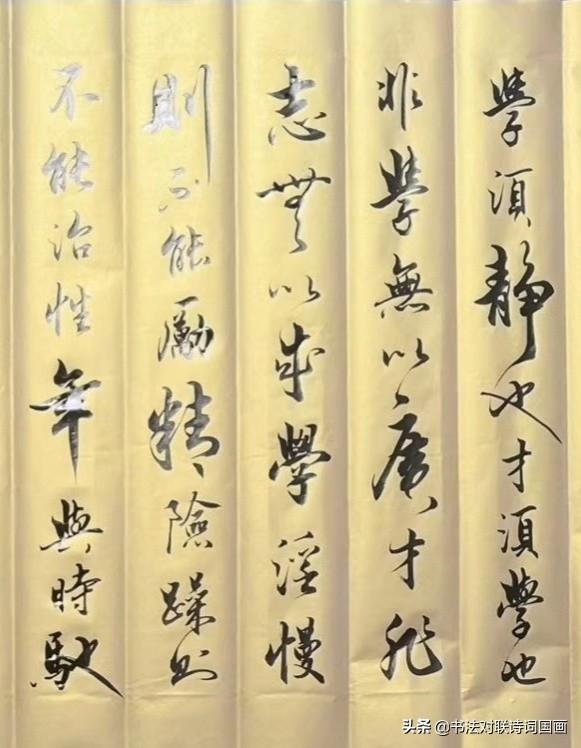 學須靜也才須學也
非學無以廣才非
志無以成學淫慢
則不能勵精險躁則
不能治性年與時馳
头条 @书法对联诗词国画